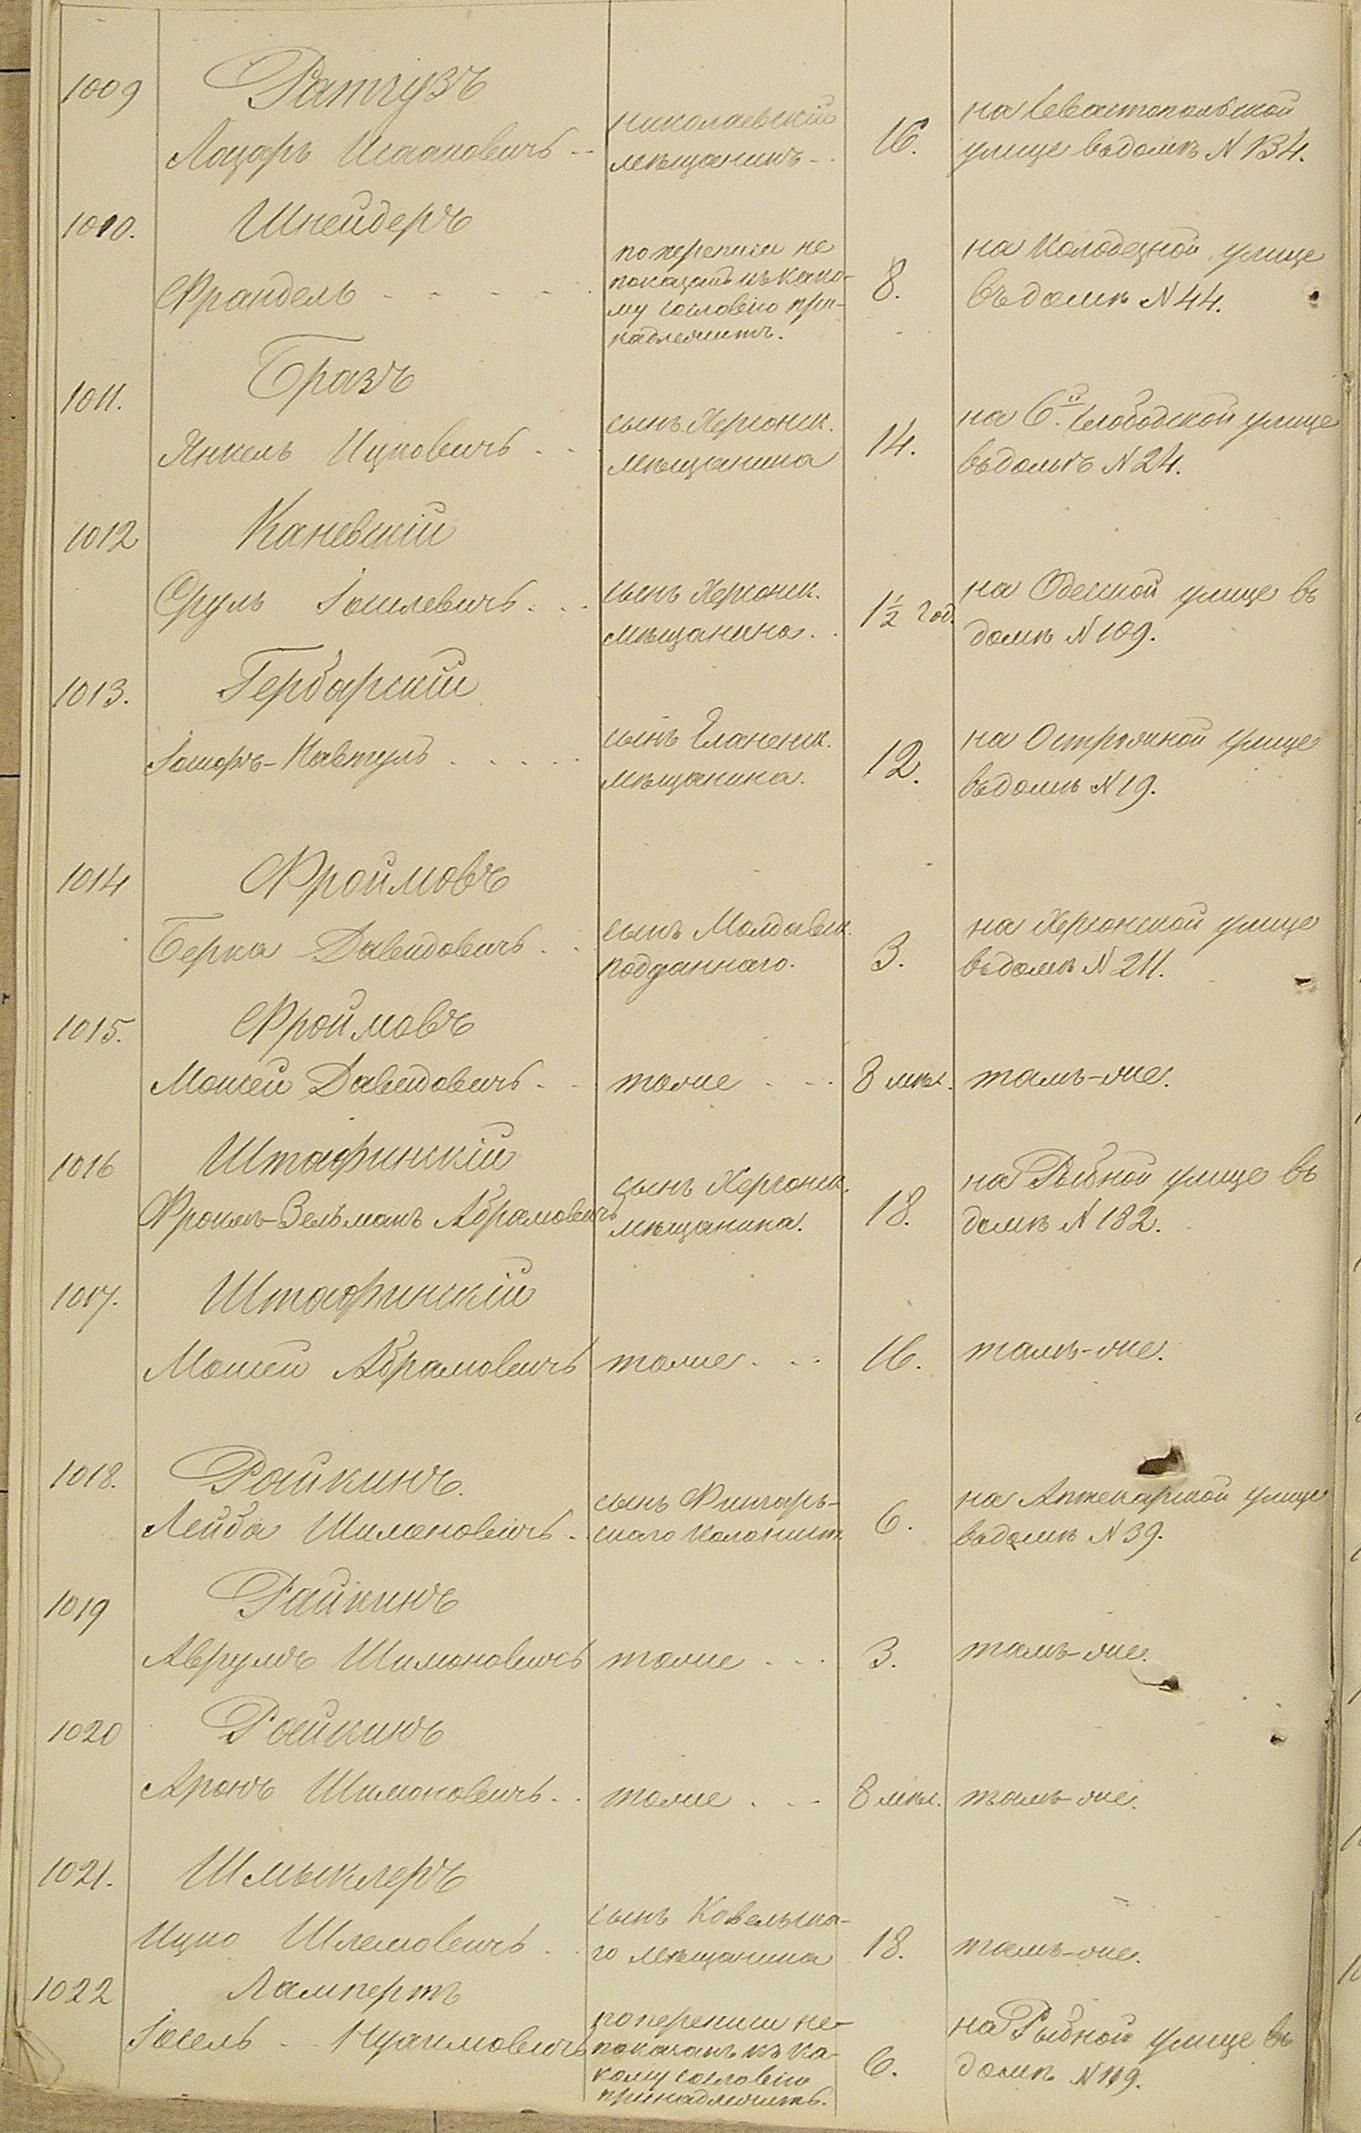 1009 Ратгузъ
Лазарь Исааковичъ -- николаевскій мѣщанинъ -. 16. на Севастопольской улице въ домѣ N 134.
1010. Шнейдеръ
Франдель - - - - - по переписи не показанъ къ како-
му сословію при-
надлежитъ. 8. на Колодезной улице
въ домѣ N 44.
1011. Бразъ
Янкель Ицковичъ . . сынъ Херсонск.
мѣщанина 14. на 6.й Слободской улице
въ домѣ N 24.
1012 Каневскій
Сруль Іоселевичъ. . . сынъ Херсонск.
мѣщанина. . 1½ год. на Одесской улице въ
домѣ N 109.
1013. Гербарскій
сынъ Еланенк.
мѣщанина. 12. на улице
въ домѣ N 19.
1014 Фроймовъ
Берка Давидовичъ . . сынъ Молдавск.
подданнаго. 3. на Херсонской улице
въ домѣ N 211.
1015. Фроймовъ
Мошей Давидовичъ - . тоже . - . 8 мѣс. тамъ-же.
1016 Штафинскій
Фроим-Зельманъ Абрамовичъ сынъ Херсонск.
мѣщанина. 18. на Рыбной улице въ
домѣ N 182.
1017. Штафинскій
Мошей Абрамовичъ тоже. . . 16. тамъ-же.
1018. Райкинъ
Лейба Шимоновичъ . сынъ
скаго колонист 6. на Аптекарской улице
въ домѣ N 39.
1019 Райкинъ
Аврумъ Шимоновичъ тоже . . . 3. тамъ-же.
1020 Райкинъ
Аронъ Шимоновичъ . . тоже . . . 8 мѣс. тамъ-же.
1021. Шмыклеръ
Ицко Шлемовичъ . . сынъ Ковельска-
го мѣщанина 18. тамъ-же.
1022 Лампертъ
Іосель . . по переписи не-
показанъ къ ка-
кому сословію
принадлежитъ. 6. на Рыбной улице въ
домѣ N 119.